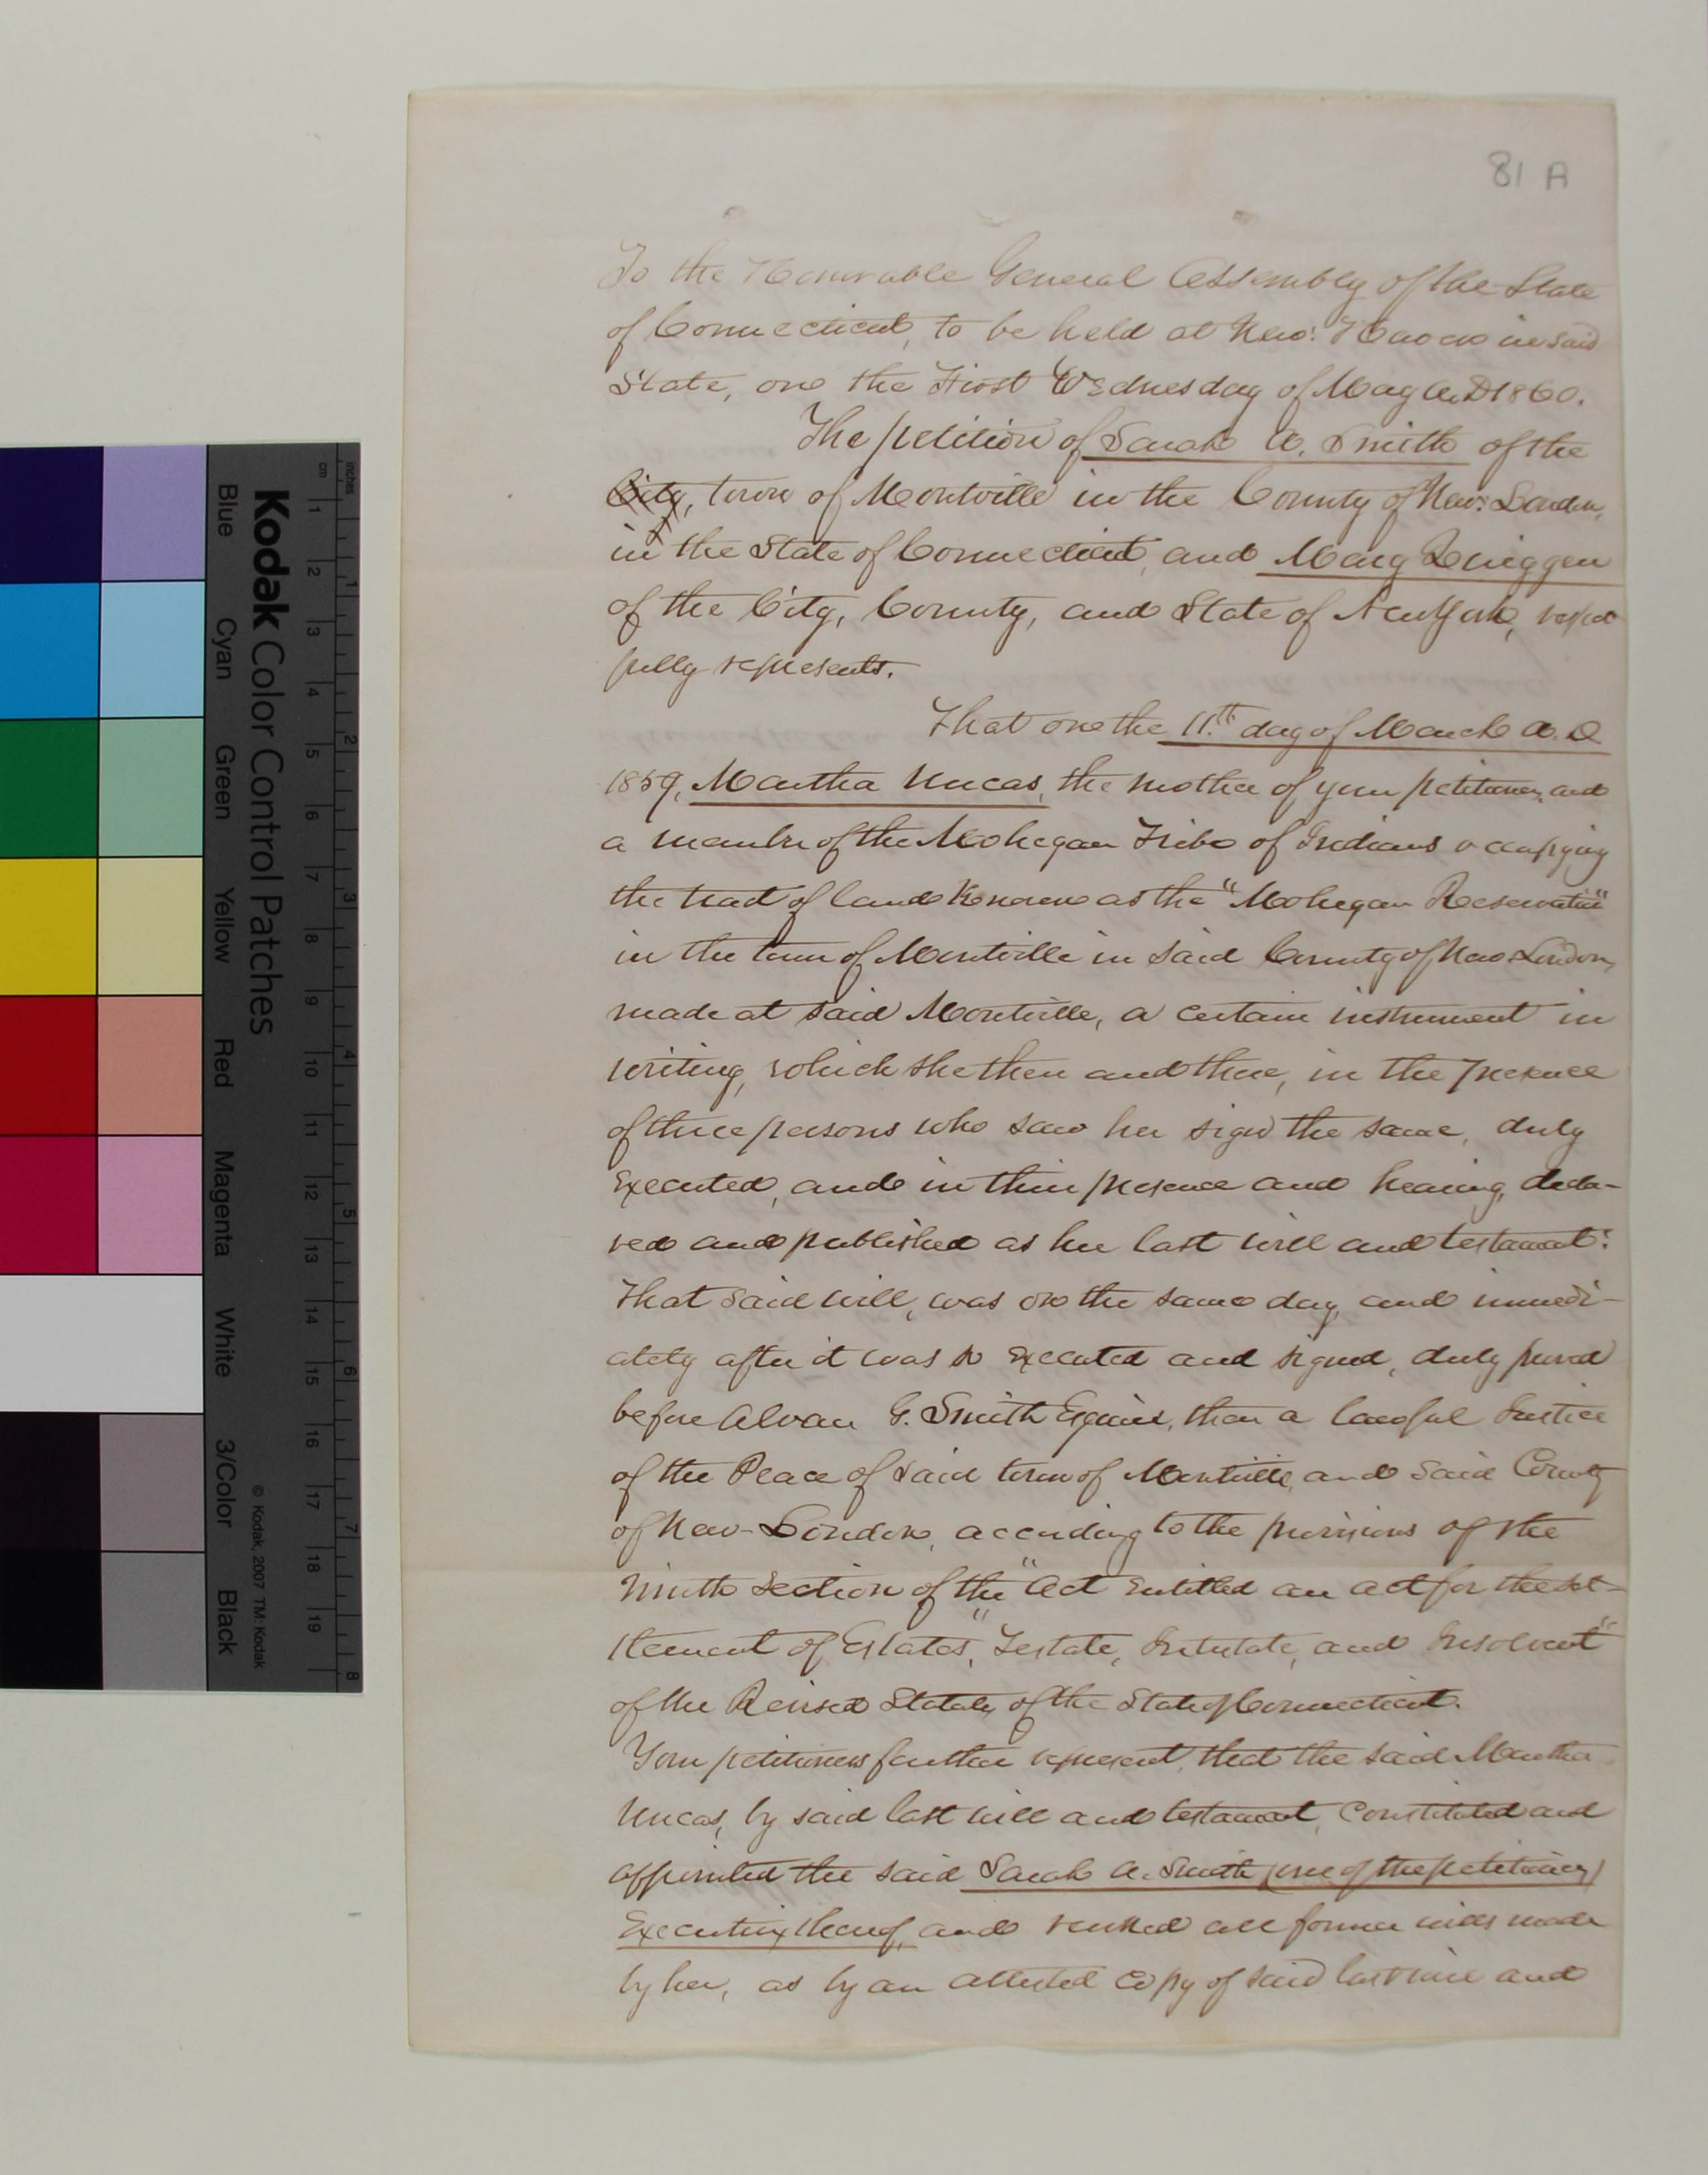 81 A
To the Honorable General Assembly of the State
of Connecticut, to be held at New: Haven in said
State, one the First Wednesday of May A.D 1860.
The petition of Sarah A. Smith of the
City, town of Montville in the County of New: London,
in the State of Connecticut, and Mary
of the City, County, and State of New York, respect
fully represents.
That one the 11th day of March A.D
1859, Martha Uncas, the mother of your petitioners, and
a member of the Mohegan Tribe of Indians occupying
the tract of land Known as the "Mohegan Reservation"
in the town of Montville in said County of New London,
made at said Montville, a certain instrument in
writing, which she then and there, in the presence
of three persons who saw her sign the same, duly
Executed, and in their presence and hearing, decla-
red and published as her last will and testament:
That said will, was on the same day, and immedi-
ately after it was so Executed and signed, duly proved
before Alvan G. Smith Esquire, then a lawful Justice
of the Peace of said town of Montville, and said County
of New-London, according to the provisions of the
Ninth Section of the "Act Entitled an act for the Set-
tlement of Estates," Testate, Intestate, and Insolvent"
of the Revised Statutes of the State of Connecticut.
Your petitioners further represent, that the said Martha
Uncas, by said last will and testament, Constituted and
appointed the said Sarah A. Smith (one of the petitioners)
Executrix thereof, and revoked all former wills made
by her, as by an attested copy of said last will and
Kodak Color Control Patches
Blue Cyan Green Yellow Red Magenta White 3/Color Black
© Kodak, 2007 TM: Kodak
inches 1 2 3 4 5 6 7 8
cm 1 2 3 4 5 6 7 8 9 10 11 12 13 14 15 16 17 18 19